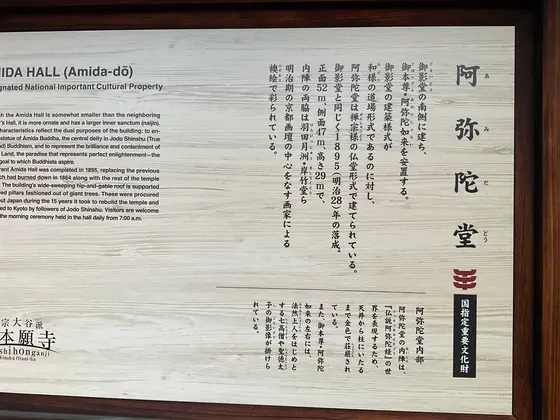 阿弥陀堂
あみだどう
国指定重要文化財
御影堂の南側に建ち、
御本尊・阿弥陀如来を安置する。
御影堂の建築様式が
和様の道場形式であるのに対し、
阿弥陀堂は禅宗様の仏堂形式で建てられている。
御影堂と同じく1895(明治28)年の落成。
正面52m、側面47m、高さ29mで、
内陣の両脇は羽田月洲・岸竹堂ら
明治期の京都画壇の中心をなす画家による
襖絵で彩られている。
阿弥陀堂内部
阿弥陀堂の内陣は、
『仏説阿弥陀経』の世
界を表現するため、
天井から柱にいたる
まで金色で荘厳され
ている。
また、御本尊・阿弥陀
如来の左右には、
法然上人をはじめと
する七高僧や聖徳太
子の御影像が掛けら
れている。
IDA HALL (Amida-dō)
signated National Important Cultural Property
h the Amida Hall is somewhat smaller than the neighboring
r's Hall, it is more ornate and has a larger inner sanctum (naijin).
characteristics reflect the dual purposes of the building: to en-
statue of Amida Buddha, the central deity in Jodo Shinshu (True
nd) Buddhism, and to represent the brilliance and contentment of
Land, the paradise that represents perfect enlightenment—the
goal to which Buddhists aspire.
rent Amida Hall was completed in 1895, replacing the previous
ch had burned down in 1864 along with the rest of the temple
The building's wide-sweeping hip-and-gable roof is supported
red pillars fashioned out of giant trees. These were procured
out Japan during the 15 years it took to rebuild the temple and
ted to Kyoto by followers of Jodo Shinshu. Visitors are welcome
the morning ceremony held in the hall daily from 7:00 a.m.
宗大谷派
本願寺
shihonganji
Otani-ha